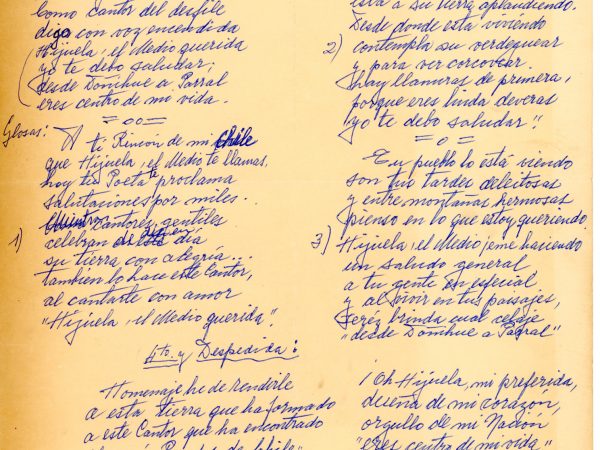 Como Cantor del desfile
digo con voz encendida
Hijuela, el Medio querida
yo te debo saludar;
desde Doñihue a Parral
eres centro de mi vida.
Glosas:
A ti Rincón de mi Chile
que Hijuela, el Medio te llamas,
hoy tu Poeta te proclama
salutaciones por miles.
Cantores gentiles
1) celebran en día
su tierra con alegría.
también lo hace este Cantor,
al cantarte con amor
"Hijuela, el Medio querida".
está a su tierra aplaudiendo.
Desde donde está viviendo
2) contempla su verdeguear
y para ver corcovear.
hay llanuras de primera,
porque eres linda deveras
yo te debo saludar".
Tu pueblo lo está viendo
son tus tardes deleitosas
y entre montañas hermosas
pienso en lo que estoy queriendo.
3) Hijuela, el Medio, eme haciendo
un saludo general
a tu gente en especial
y al vivir en tus paisajes,
brinda cual celaje
"desde Doñihue a Parral"
4to. y Despedida:
Homenaje he de rendirle
a esta tierra que ha formado
a este Cantor que ha encontrado
¡Oh Hijuela, mi preferida,
dueña de mi corazón,
orgullo de mi Nación
"eres centro de mi vida"